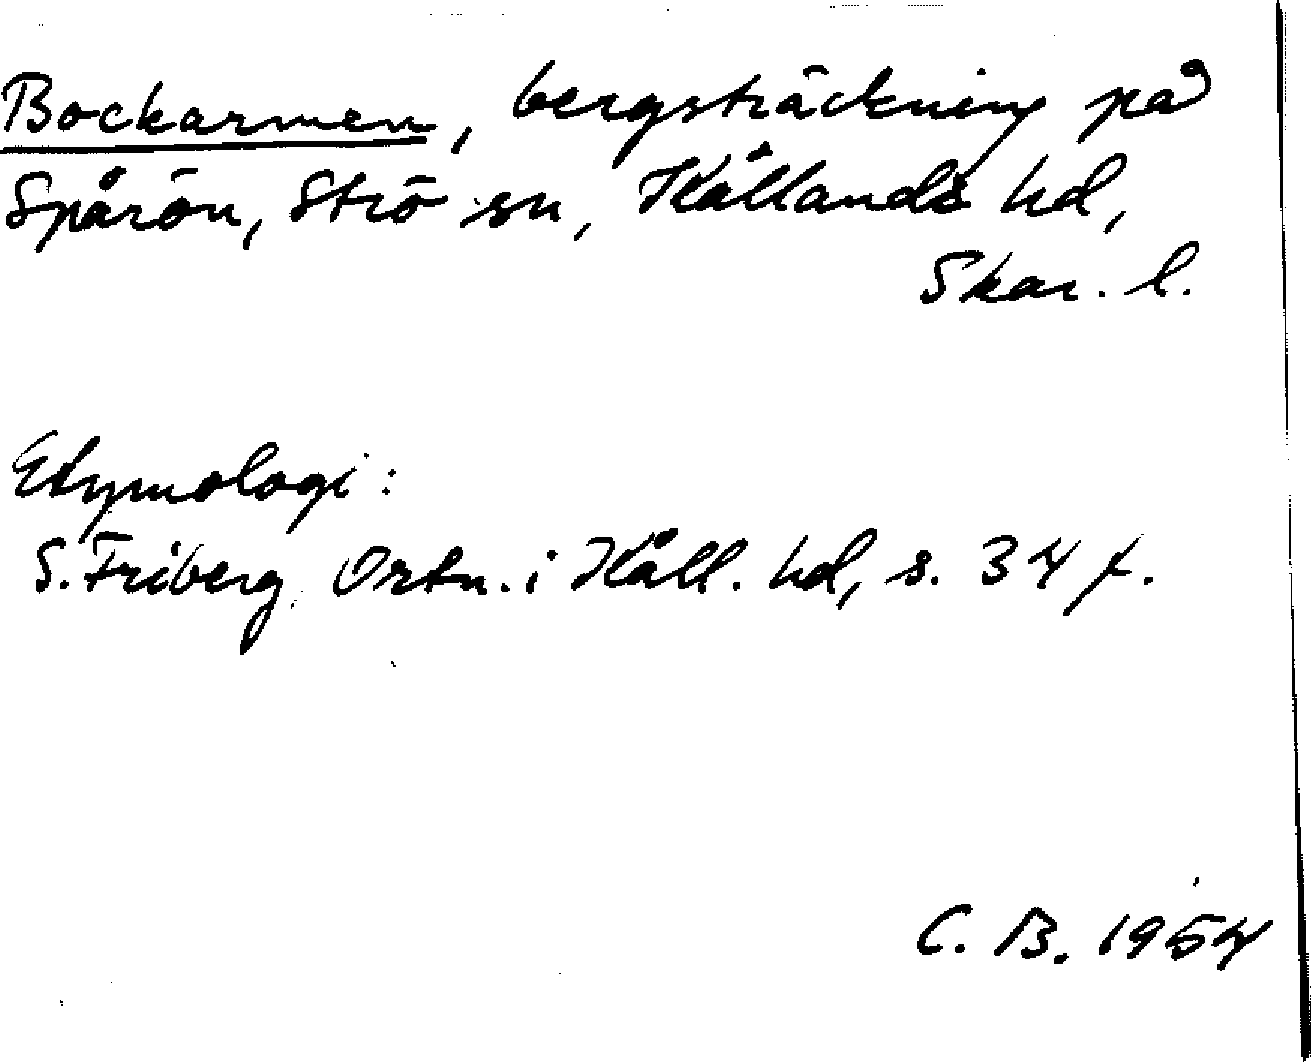 Bockarmen, bergsträckning på
Spårön, Strö sn, Kållands hd,
Skar. l.
Etymologi:
S. Friberg Ortn. i Kåll. hd, s. 34 f.
C. B. 1954